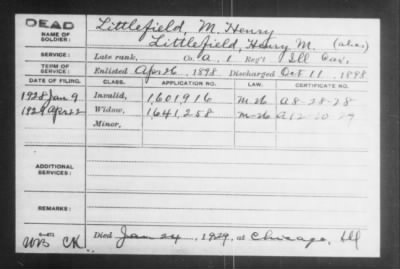 DEAD
NAME OF SOLDIER: Littlefield, M. Henry
Littlefield, Henry M. (alias)
SERVICE: Late rank, Co. A, 1 Reg't Ill Cav,
TERM OF SERVICE: Enlisted Apr 26, 1898 Discharged Oct 11, 1898
DATE OF FILING. CLASS. APPLICATION NO. LAW. CERTIFICATE NO.
1928 Jan 9 Invalid, 1,601,916 A 8-28-28
1929 Apr 22 Widow, 1,641,258 A 12-10-29
Minor,
ADDITIONAL SERVICES:
REMARKS:
6-472
WB CK Died Jan 24, 1929, at Chicago, Ill